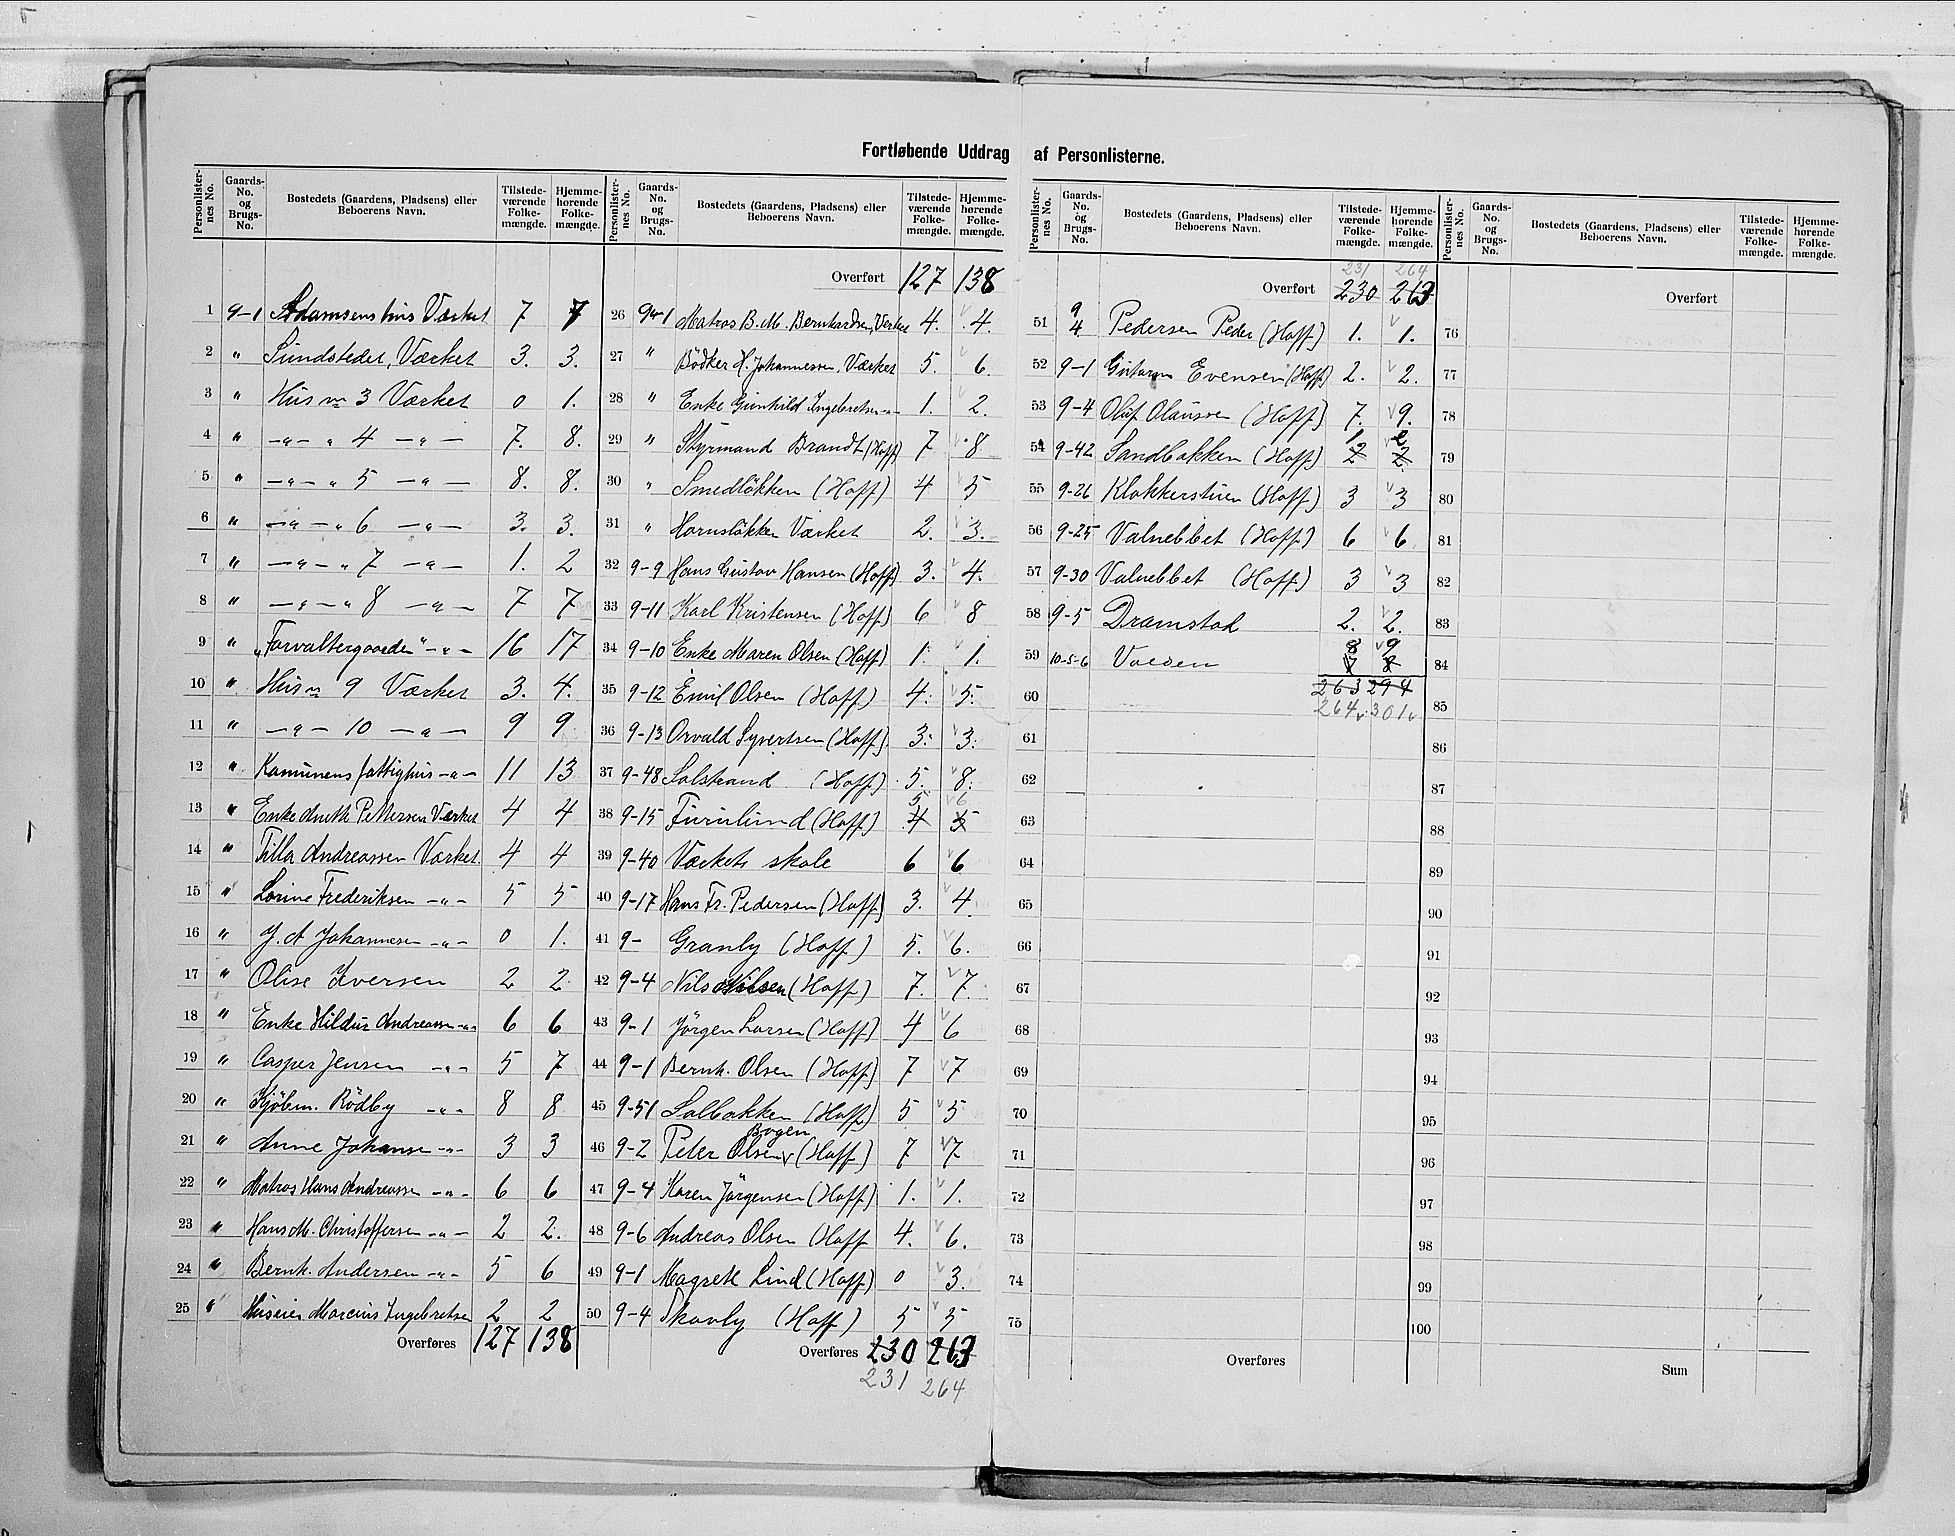 Fortløbende Uddrag af Personlisterne.
Personlisternes No. Gaards-No. og Brugs-No. Bostedets (Gaardens, Pladsens) eller Beboerens Navn. Tilstedeværende Folkemængde. Hjemmehørende Folkemængde.
1 9-1 Adamsens hus Værket 7 7
2 " Sundstedet, Værket 3. 3.
3 " Hus no 3 Værket 0 1.
4 " —"— " 4 —"— 7. 8.
5 " —"— " 5 —"— 8. 8.
6 " —"— " 6 —"— 3. 3.
7 " —"— " 7 —"— 1. 2
8 " —"— " 8 —"— 7 7
9 " "Forvaltergaarden" -"- 16 17
10 " Hus no 9 Værket 3. 4.
11 " —"— 10 —"— 9 9
12 " Kamunens fattighus -"- 11 13
13 " Enke Anette Pettersen Værket 4 4
14 " Tilla Andreassen Værket 4 4
15 " Lorine Frederiksen -"- 5 5
16 " J. A Johannesen -"- 0 1.
17 " Olise Iversen 2 2
18 " Enke Hildur Andreassen -"- 6 6
19 " Casper Jensen -"- 5 7
20 " Kjøbm. Rödby -"- 8 8
21 " Anne Johanse -"- 3 3
22 " Matros Hans Andreassen -"- 6 6
23 " Hans M. Christoffersen -"- 2 2.
24 " Bernh. Andersen -"- 5 6
25 " Huseier Marcius Ingebretsen 2 2
Overføres 127 138
Personlisternes No. Gaards-No. og Brugs-No. Bostedets (Gaardens, Pladsens) eller Beboerens Navn. Tilstedeværende Folkemængde. Hjemmehørende Folkemængde.
Overført 127 138
26 9-1 Matros B. M. Bernhardsen, Værket 4. 4.
27 " Bødker H. Johannessen, Værket 5. 6.
28 " Enke Gunhild Ingebretsen -"- 1. 2.
29 " Styrmand Brandt (Hoff) 7 8
30 " Smedløkken (Hoff) 4 5
31 " Hornsløkken Værket 2. 3.
32 9-9 Hans Gustav Hansen (Hoff) 3. 4.
33 9-11 Karl Kristensen (Hoff) 6 8
34 9-10 Enke Maren Olsen (Hoff) 1. 1.
35 9-12 Emil Olsen (Hoff) 4. 5.
36 9-13 Orvald Syvertsen (Hoff). 3. 3.
37 9-48 Solstrand (Hoff) 5. 8.
5 6
38 9-15 Furulund (Hoff) 4 5
39 9-40 Værkets skole 6 6
40 9-17 Hans Fr. Pedersen (Hoff) 3. 4.
41 9- Granly (Hoff) 5. 6.
42 9-4 Nils Nilsen (Hoff) 7. 7.
43 9-1 Jørgen Larsen (Hoff) 4 6
44 9-1 Bernh. Olsen (Hoff) 7 7
45 9-51 Solbakken (Hoff) 5 5
Bogen
46 9-2 Peter Olsen (Hoff) 7 7
47 9-4 Karen Jørgensen (Hoff) 1. 1.
48 9-6 Andreas Olsen (Hoff 4. 6.
49 9-1 Magrete Lind (Hoff) 0 3.
50 9-4 Skovly (Hoff) 5 5
Overføres 230 263
231 264
Personlisternes No. Gaards-No. og Brugs-No. Bostedets (Gaardens, Pladsens) eller Beboerens Navn. Tilstedeværende Folkemængde. Hjemmehørende Folkemængde.
231 264
Overført 230 263
51 9 4 Pedersen Peder (Hoff) 1. 1.
52 9-1 Evensen (Hoff) 2. 2.
53 9-4 Oluf Olaussen (Hoff) 7. 9.
54 9-42 Sandbakken (Hoff) 1 2 2 2
55 9-26 Klokkerstuen (Hoff) 3 3
56 9-25 Valnebbet (Hoff) 6 6
57 9-30 Valnebbet (Hoff) 3 3
58 9-5 Dramstad 2. 2.
8 9
59 10-5-6 Volden 7 8
60 263 294
264 301
61
62
63
64
65
66
67
68
69
70
71
72
73
74
75
Overføres
Personlisternes No. Gaards-No. og Brugs-No. Bostedets (Gaardens, Pladsens) eller Beboerens Navn. Tilstedeværende Folkemængde. Hjemmehørende Folkemængde.
Overført
76
77
78
79
80
81
82
83
84
85
86
87
88
89
90
91
92
93
94
95
96
97
98
99
100
Sum